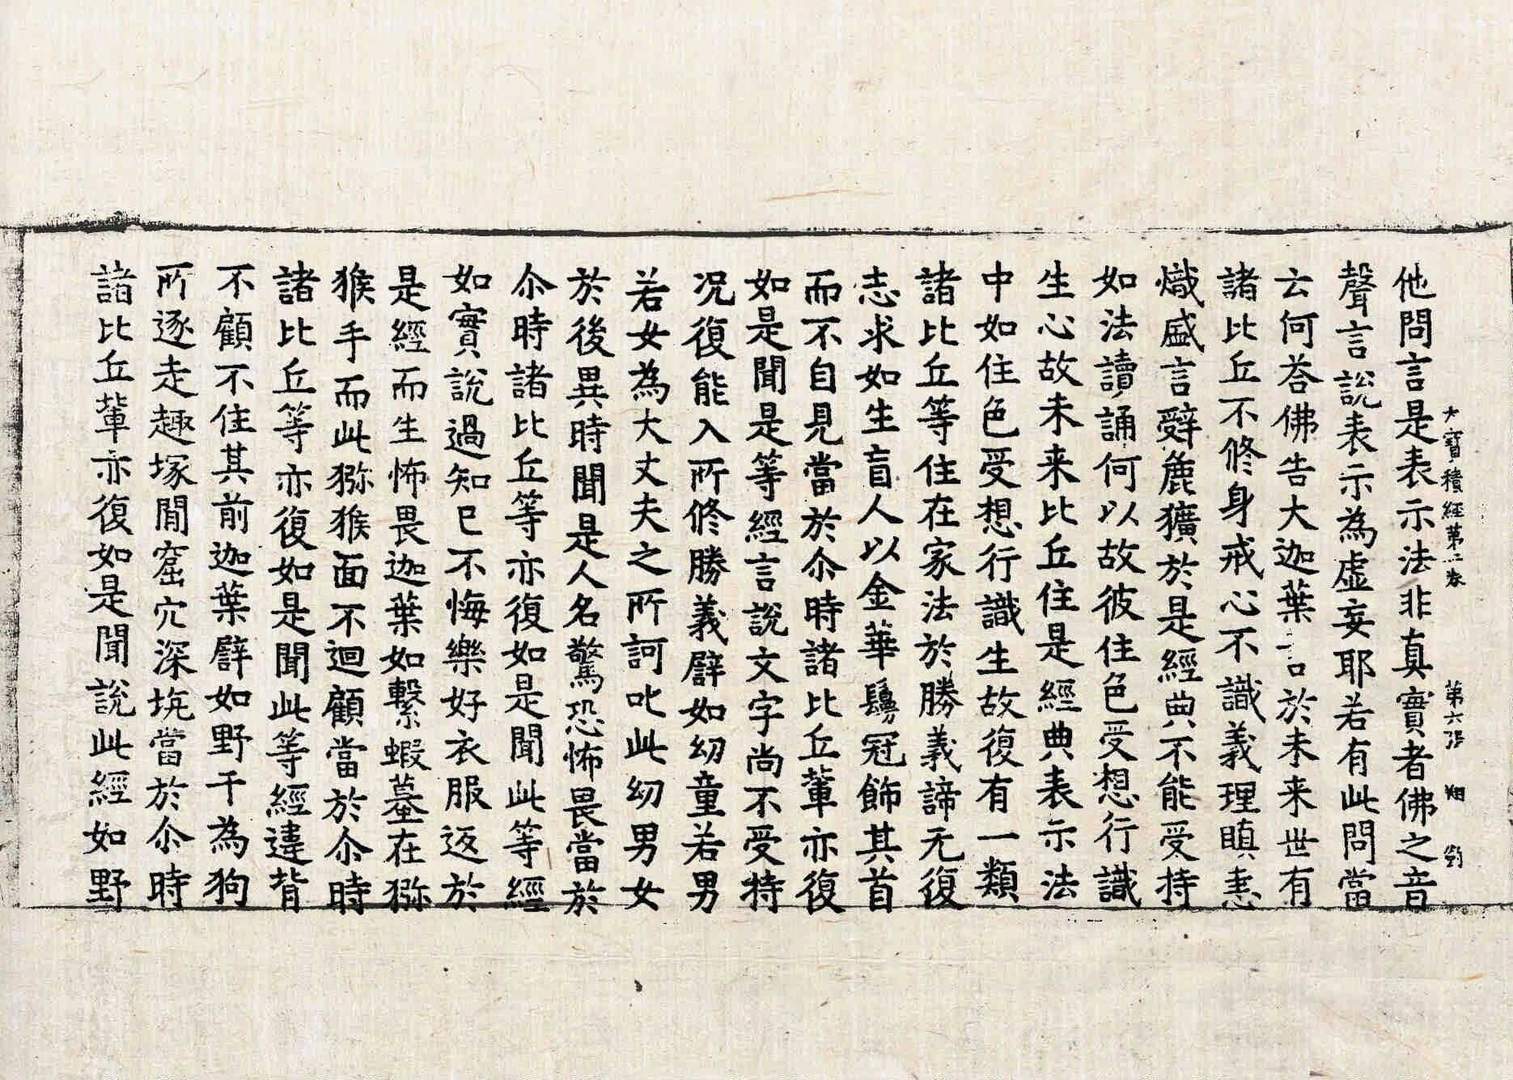 大寶積經第二卷 第六張 翔 劉
他問言是表示法非真實者佛之音
聲言說表示為虛妄耶若有此問當
云何荅佛告大迦葉 於未来世有
諸比丘不修身戒心不識義理瞋恚
熾盛言辭麁獷於是經典不能受持
如法讀誦何以故彼住色受想行識
生心故未来比丘住是經典表示法
中如住色受想行識生故復有一類
諸比丘等住在家法於勝義諦无復
志求如生盲人以金華鬘冠飾其首
而不自見當於尒時諸比丘輩亦復
如是聞是等經言說文字尚不受持
况復能入所修勝義譬如幼童若男
若女為大丈夫之所訶叱此幼男女
於後異時聞是人名驚恐怖畏當於
尒時諸比丘等亦復如是聞此等經
如實說過知已不悔樂好衣服返於
是經而生怖畏迦葉如繫蝦蟇在猕
猴手而此猕猴面不迴顧當於尒時
諸比丘等亦復如是聞此等經違背
不顧不住其前迦葉譬如野干為狗
所逐走趣塚間窟穴深坑當於尒時
諸比丘輩亦復如是聞說此經如野